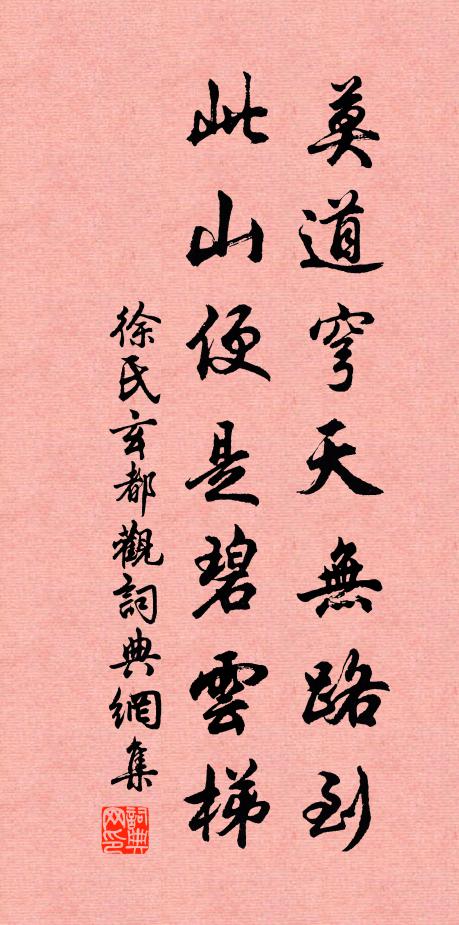 莫道穹天無路到
此山便是碧雲梯
徐氏玄都觀詞典網集
詞典网印